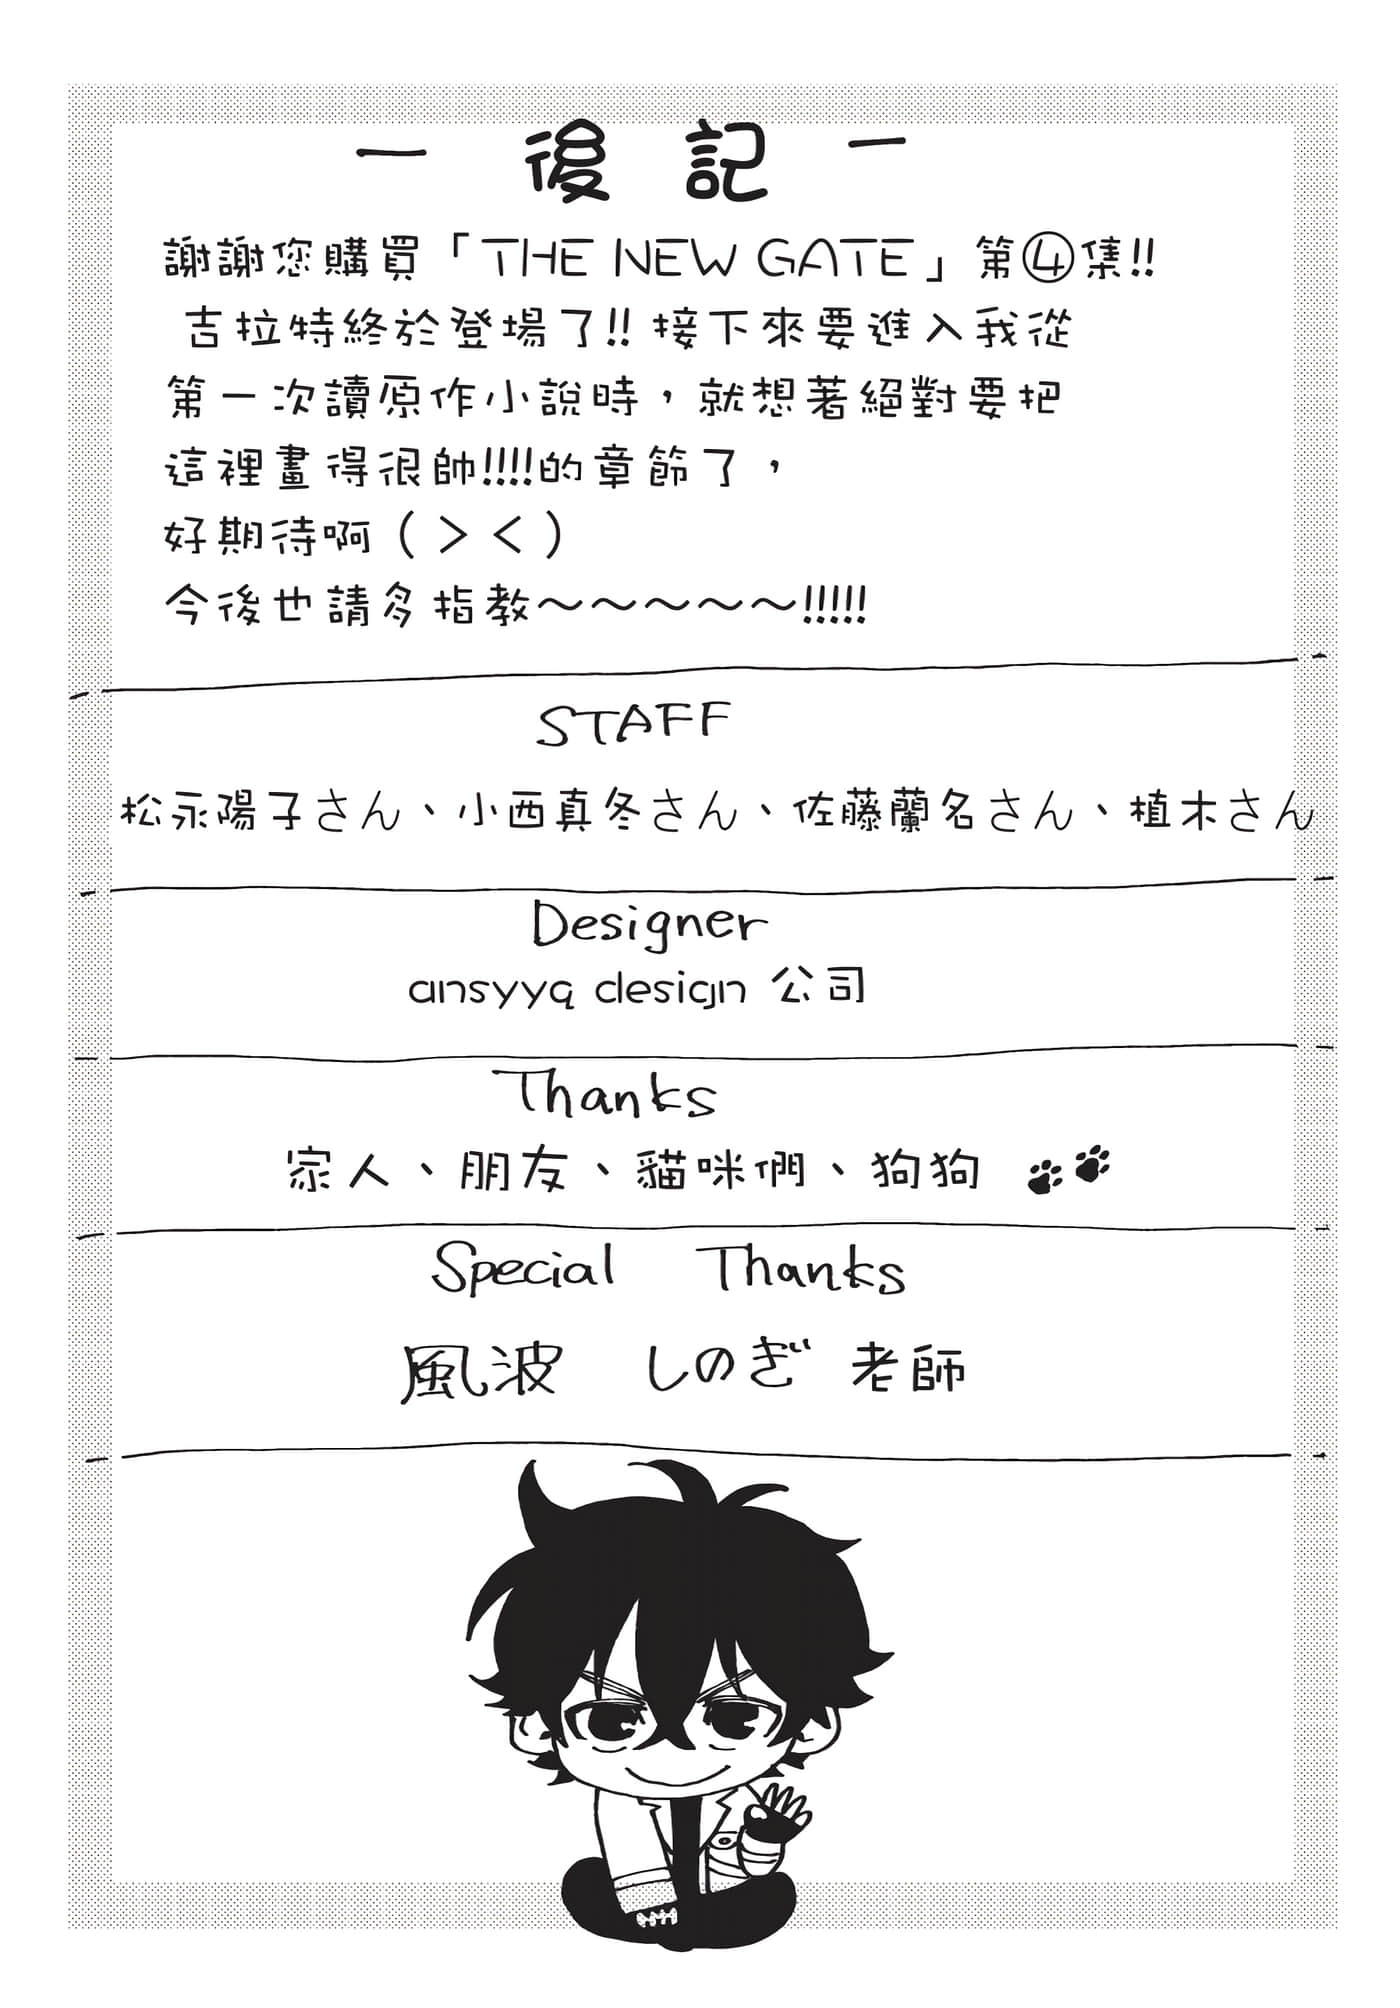 － 後 記 －
謝謝您購買「THE NEW GATE」第④集!!
吉拉特終於登場了!! 接下來要進入我從
第一次讀原作小說時，就想著絕對要把
這裡畫得很帥!!!!的章節了，
好期待啊（＞＜）
今後也請多指教～～～～～!!!!!
STAFF
松永陽子さん、小西真冬さん、佐藤蘭名さん、植木さん
Designer
ansyyq design 公司
Thanks
家人、朋友、貓咪們、狗狗
Special Thanks
風波 しのぎ 老師